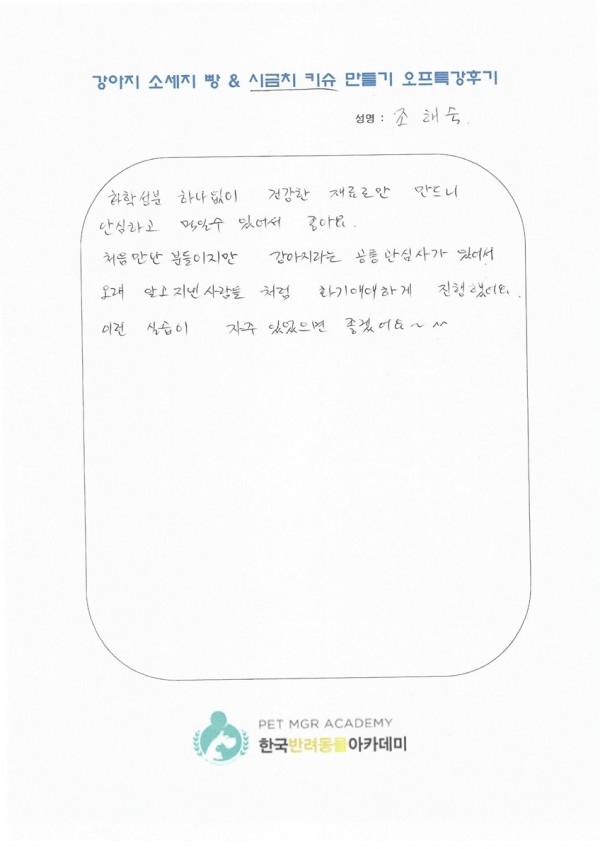 강아지 소세지 빵 & 시금치 키슈 만들기 오프특강후기
성명 : 조해숙.
화학성분 하나없이 건강한 재료로만 만드니
안심하고 먹일수 있어서 좋아요.
처음만난 분들이지만 강아지라는 공통관심사가 있어서
오래 알고지낸사람들 처럼 화기애애하게 진행했어요.
이런 실습이 자주 있었으면 좋겠어요~ ^^
PET MGR ACADEMY
한국반려동물아카데미